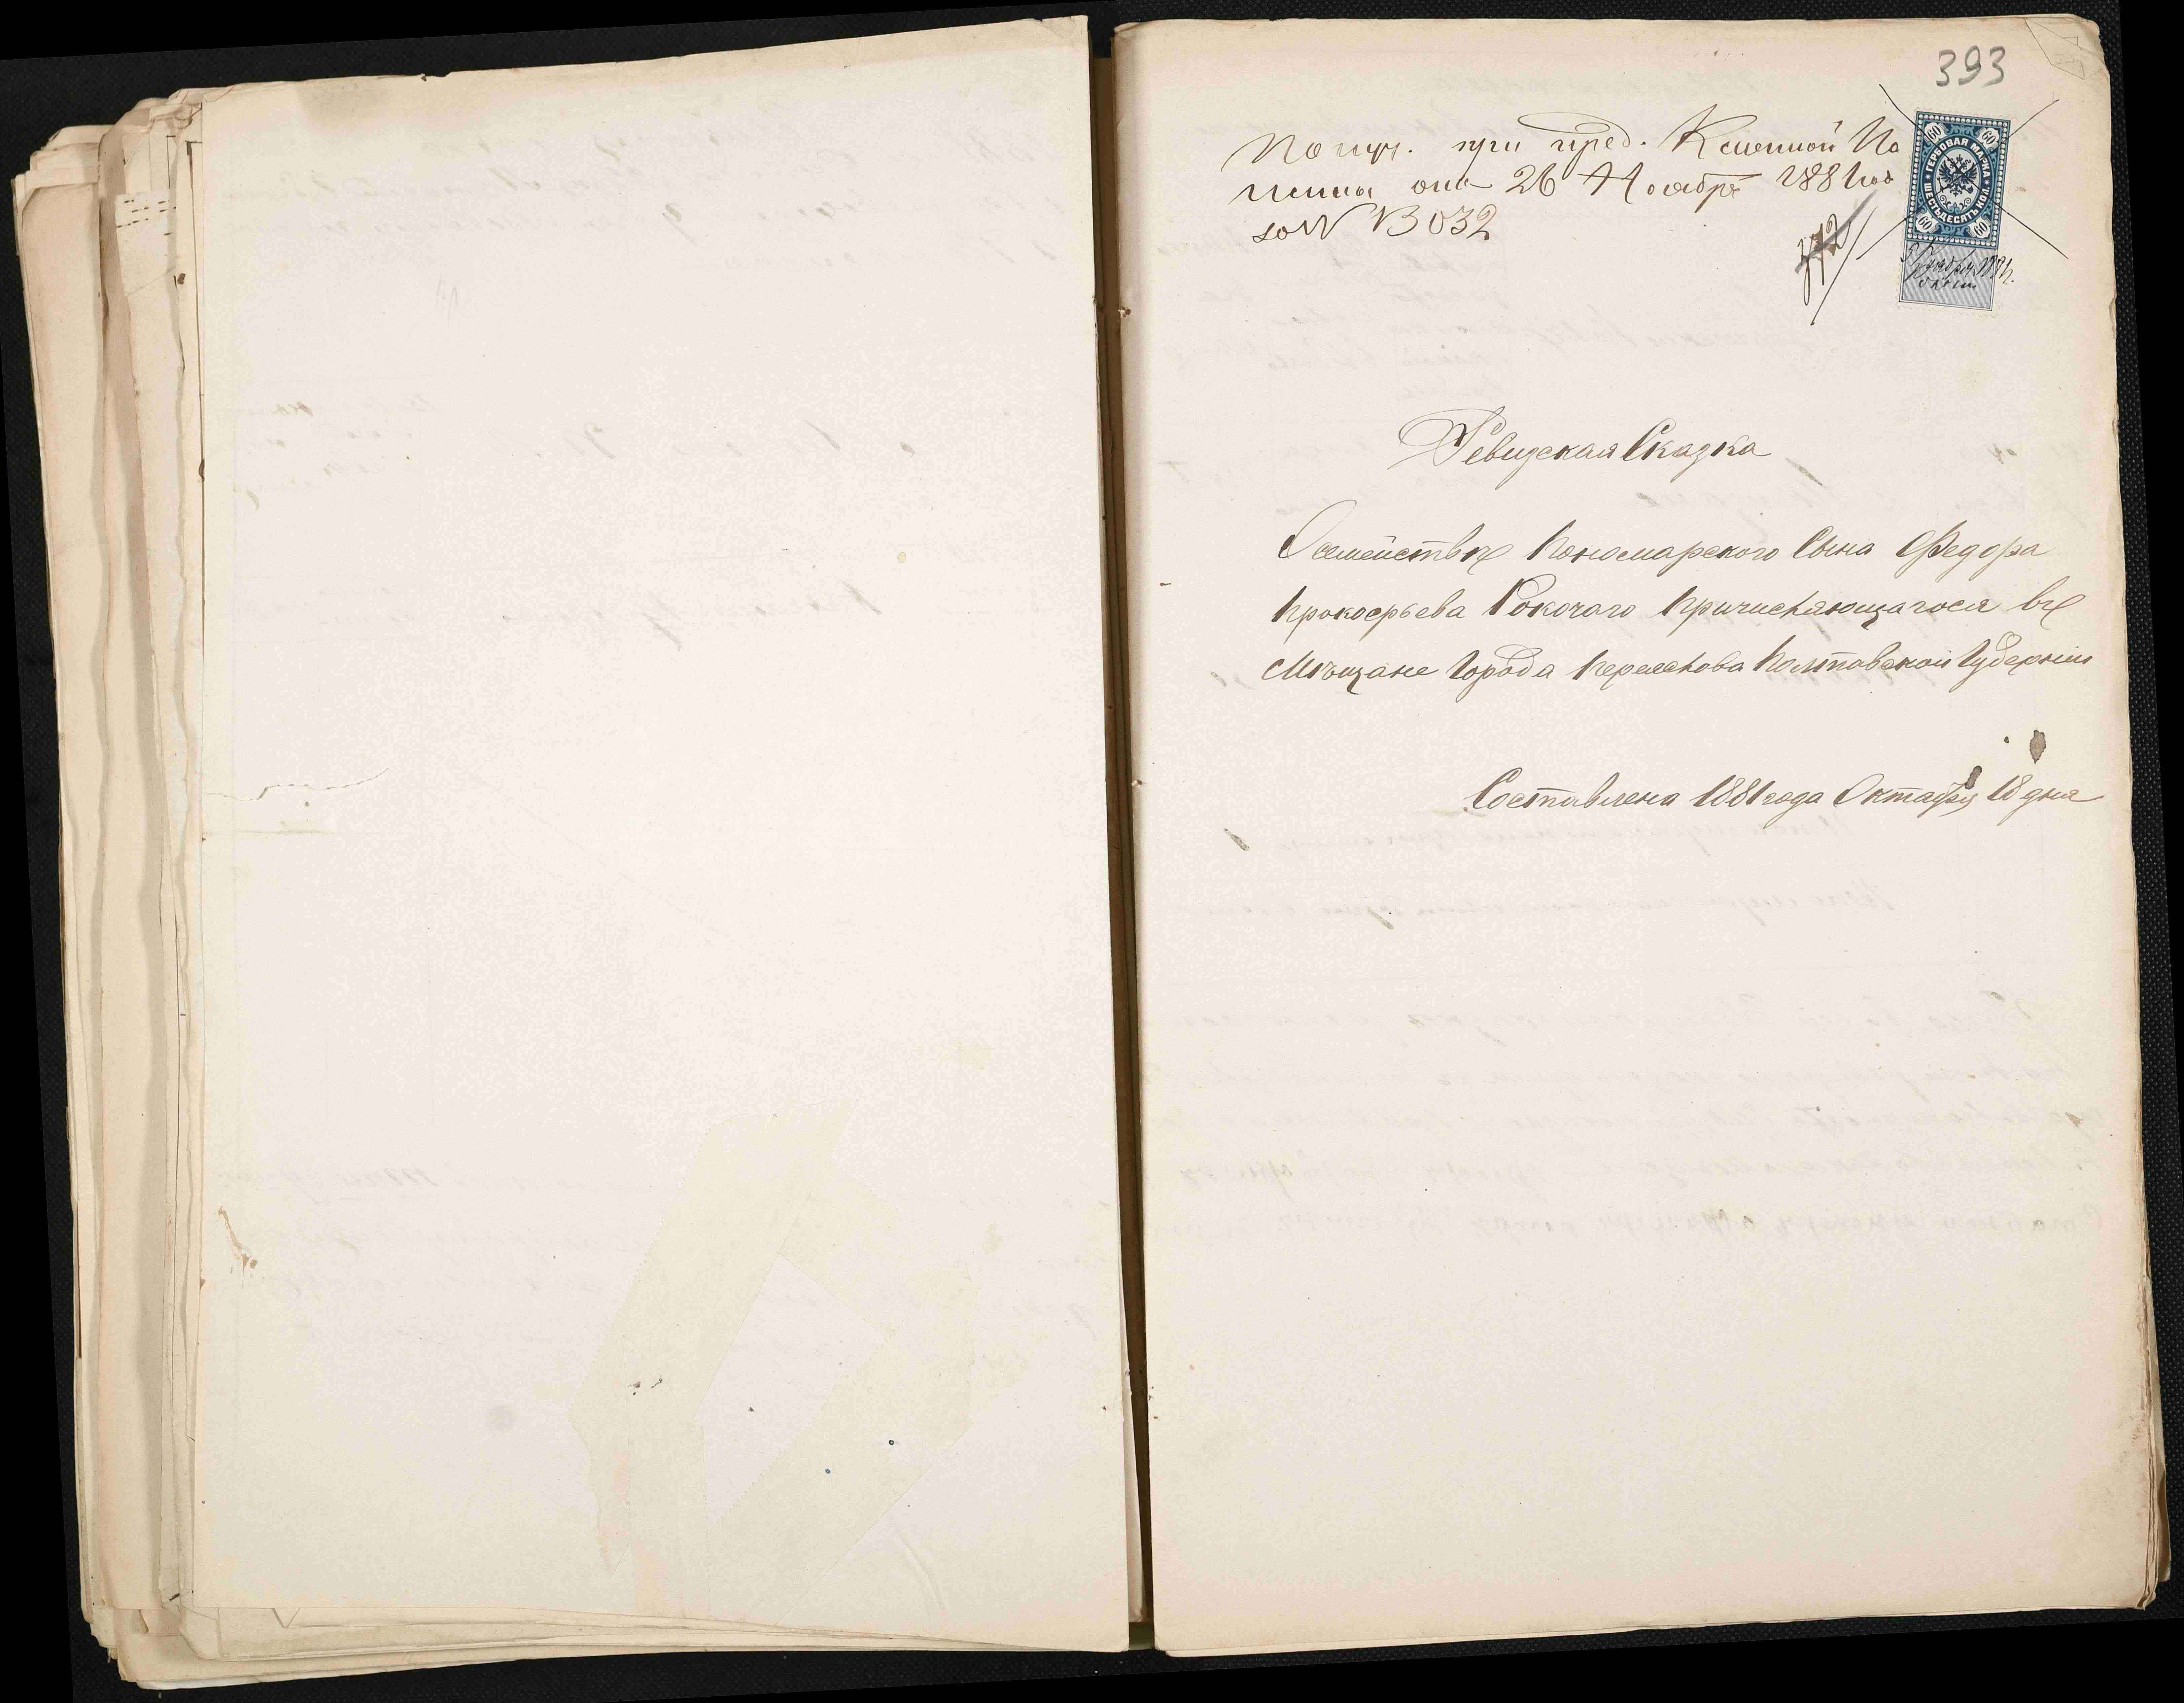 393
Получ. при пред. Казенной Па
латы отъ 26 Ноября 1881 года
за № 13032
372
60 60
ГЕРБОВАЯ МАРКА
ШЕСТЬДЕСЯТЪ КОП.
60 60
Ревизская Сказка
О семействѣ Пономарского Сына Федора
Прокофьева Рокочаго причисляющагося въ
Мѣщане Города Переяслова Полтавской Губерніи
Составлена 1881 года Октября 18 дня